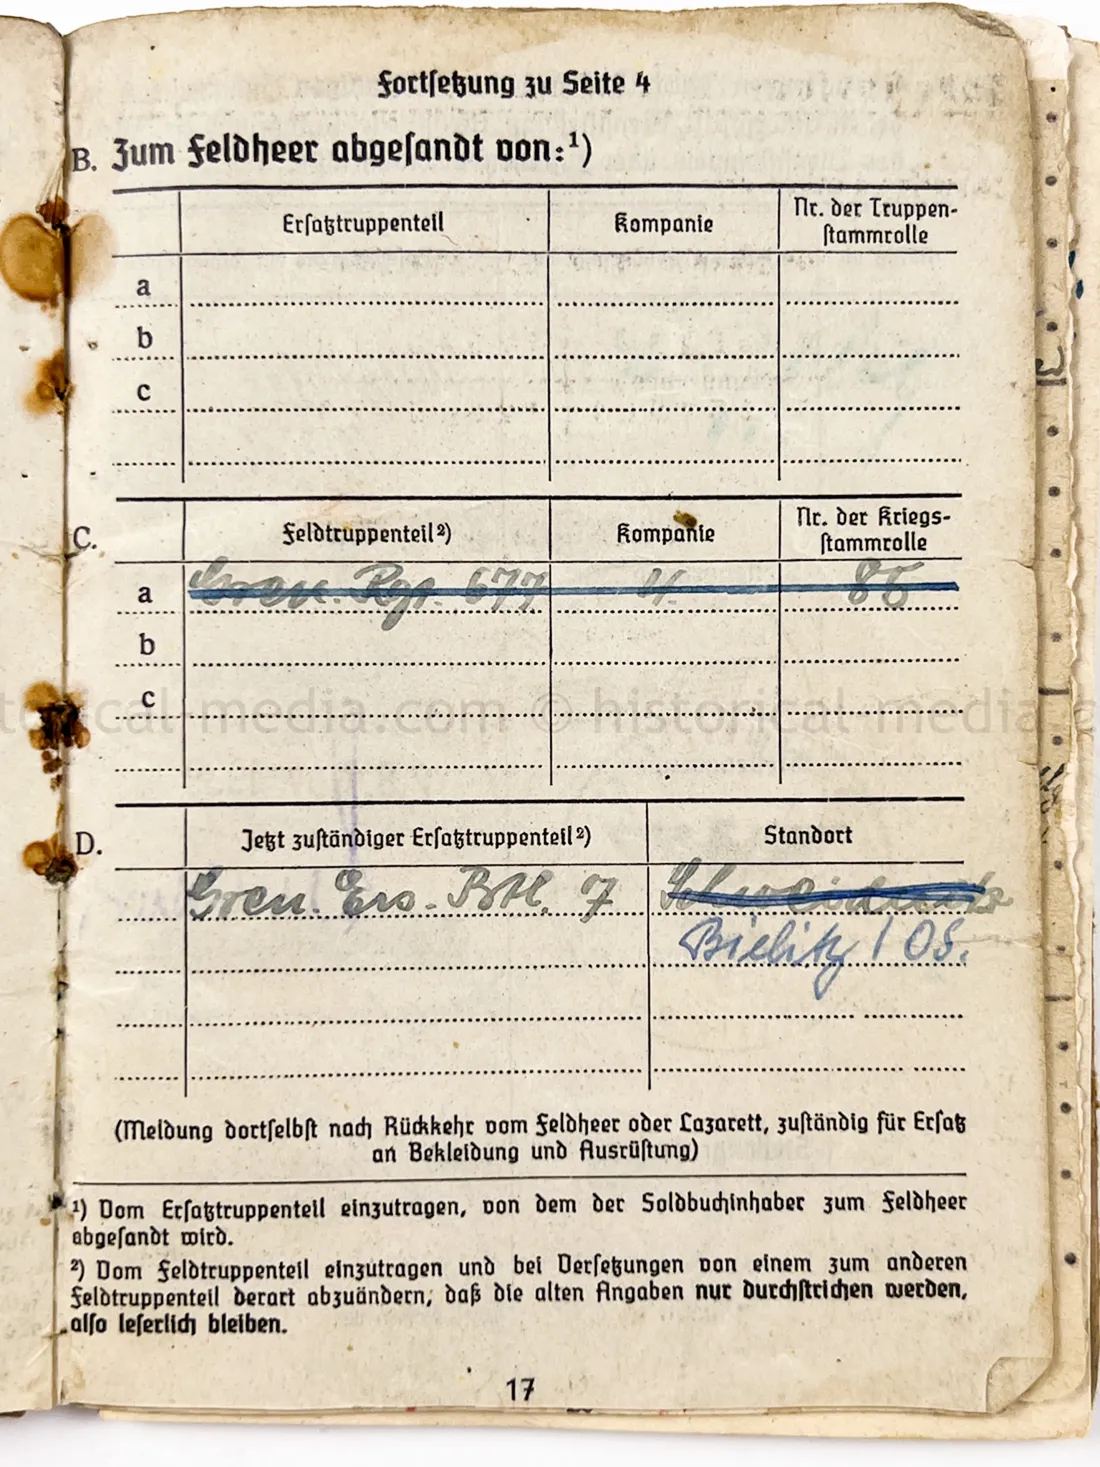 Fortsetzung zu Seite 4
B. Zum Feldheer abgesandt von:¹)
Ersatztruppenteil Kompanie Nr. der Truppen-
stammrolle
a
b
c
C. Feldtruppenteil²) Kompanie Nr. der Kriegs-
stammrolle
a Gren. Rgt. 677 4. 85
b
c
historical-media.com © historical-media.c
D. Jetzt zuständiger Ersatztruppenteil²) Standort
Gren. Ers. Btl. 7 Schweidnitz
Bielitz / OS.
(Meldung dortselbst nach Rückkehr vom Feldheer oder Lazarett, zuständig für Ersatz
an Bekleidung und Ausrüstung)
¹) Vom Ersatztruppenteil einzutragen, von dem der Soldbuchinhaber zum Feldheer
abgesandt wird.
²) Vom Feldtruppenteil einzutragen und bei Versetzungen von einem zum anderen
Feldtruppenteil derart abzuändern, daß die alten Angaben nur durchstrichen werden,
also leserlich bleiben.
17